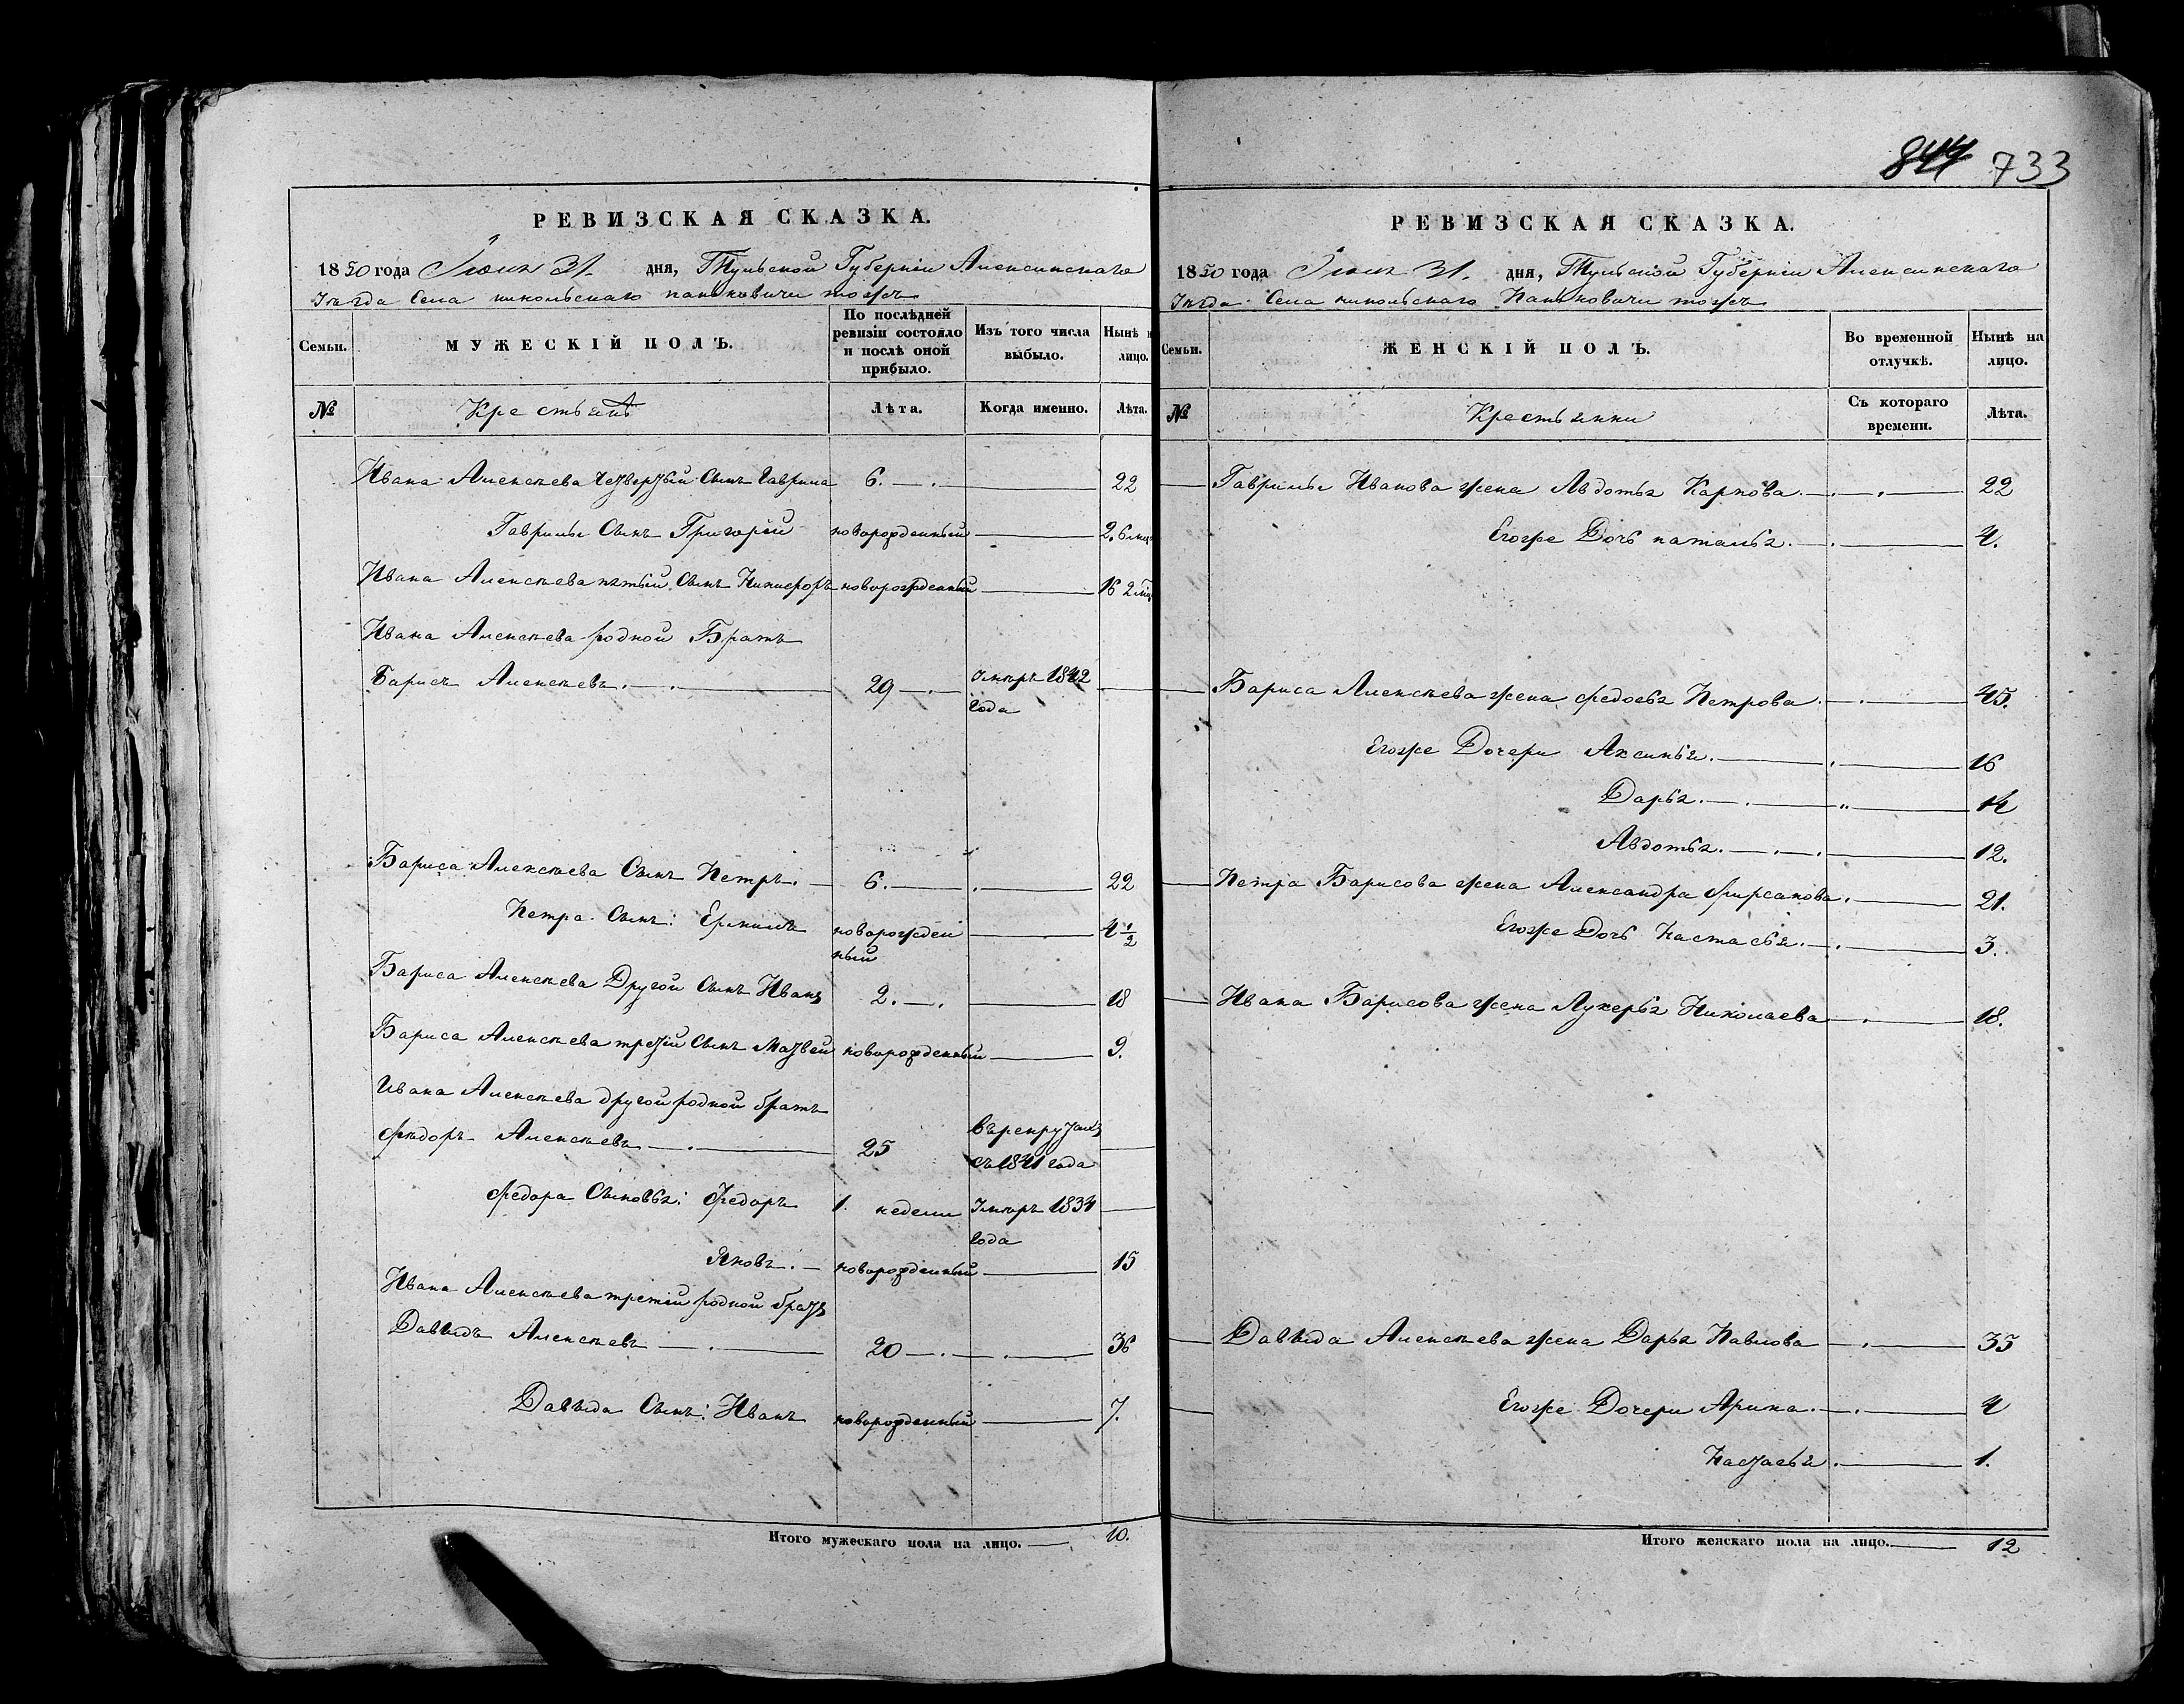 РЕВИЗСКАЯ СКАЗКА.
1850 года Июля 31. дня, Тульской Губерніи Алексинскаго
Уѣзда Села никольскаго паньковичи тожъ
Семьи.
МУЖЕСКІЙ ПОЛЪ.
По послѣдней
ревизіи состояло
и послѣ оной
прибыло.
Изъ того числа
выбыло.
Нынѣ н
лицо.
№
Крестьянъ
Лѣта.
Когда именно.
Лѣта.
Ивана Алексѣева четвертый Сынъ Гаврила 6. 22
Гаврилы Сынъ Григорій новорожденный 2. 6 мца
Ивана Алексѣева пятый Сынъ Никифоръ новорожденный 16 2 мца
Ивана Алексѣева родной Братъ
Барисъ Алексѣевъ. 29 Умеръ 1842
года
Бариса Алексѣева Сынъ Петръ. 6. 22
Петра Сынъ: Ермилъ новорожден 4 1/2
ный
Бариса Алексѣева Другой Сынъ Иванъ 2. 18
Бариса Алексѣева третій Сынъ Матвей новорожденный 9.
Ивана Алексѣева другой родной братъ
Фѣдоръ Алексѣевъ 25 въ рекрутахъ
съ 1841 года
Федора Сыновья: Федоръ 1. недели Умеръ 1834
года
Яковъ. новорожденный 15
Ивана Алексѣева третій родной братъ
Давыдъ Алексѣевъ 20 36
Давыда Сынъ: Иванъ новорожденный 7.
Итого мужескаго пола на лицо. 10.
844 733
РЕВИЗСКАЯ СКАЗКА.
1850 года Июля 31. дня, Тульской Губерніи Алексинскаго
Уѣзда Села никольскаго Паньковичи тожъ
Семьи.
ЖЕНСКІЙ ПОЛЪ.
Во временной
отлучкѣ.
Нынѣ на
лицо.
№
Крестьянки
Съ котораго
времени.
Лѣта.
Гаврилы Иванова жена Авдотья Карпова. 22
Егоже Дочь наталья. 4.
Бариса Алексѣева жена Федосья Петрова 45.
Егоже Дочери Аксинья. 16
Дарья. 14
Авдотья. 12.
Петра Барисова жена Александра Фирсанова. 21.
Егоже Дочь Настасья. 3.
Ивана Барисова жена Лукерья Николаева 18.
Давыда Алексѣева жена Дарья Павлова 35
Егоже Дочери Арина. 4
Настасья. 1.
Итого женскаго пола на лицо. 12